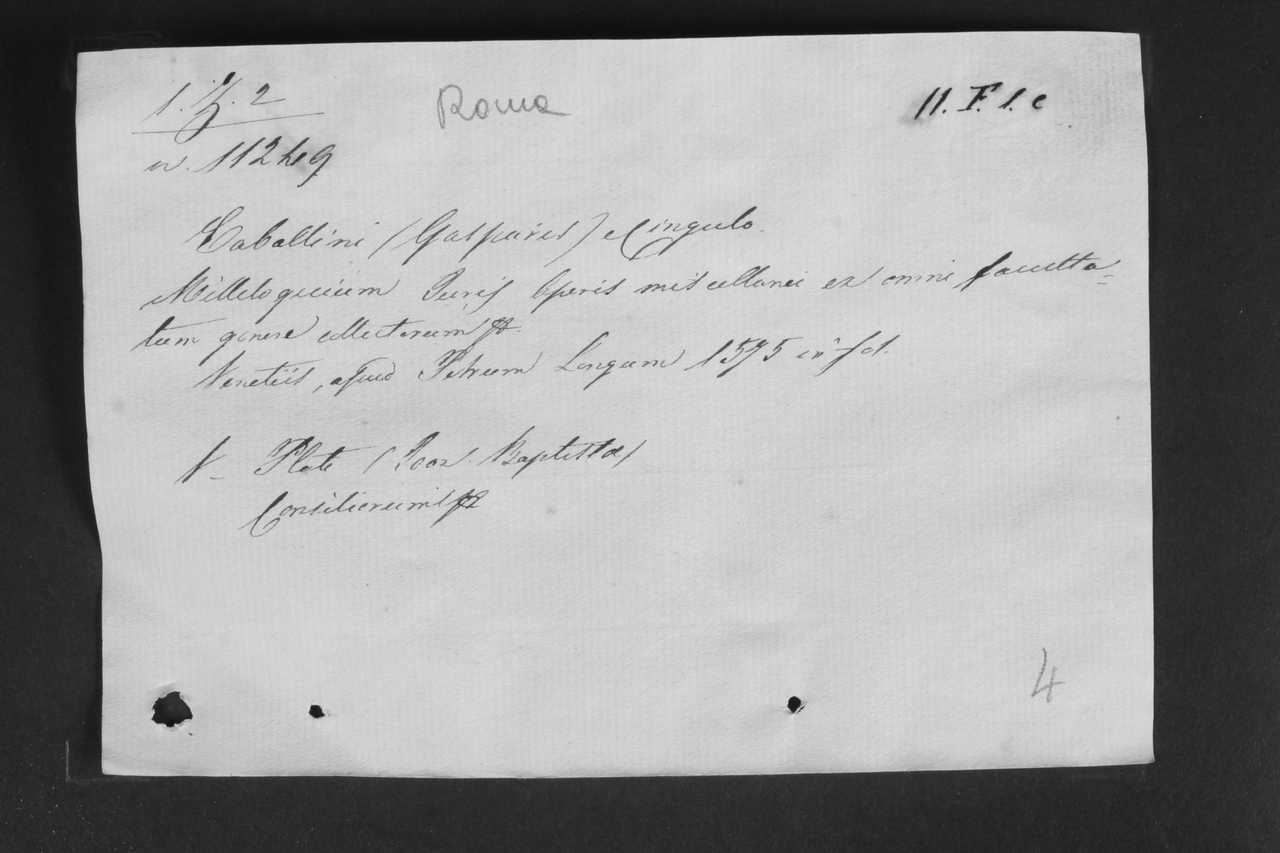 1. Z. 2
Roma
11. F. 1. c
n. 11249
Caballini (Gasparis) e Cingulo.
Milleloquium Juris Operis miscellanei ex omni faculta-
tum genere collectorum &.
Venetiis, apud Petrum Longum 1575 in fol.
V- Plote (Joan. Baptista)
Consiliorum &
4